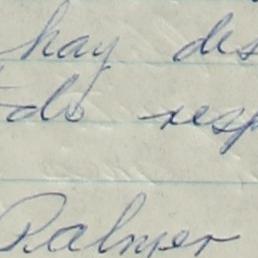 hay des
do resp
Palmer